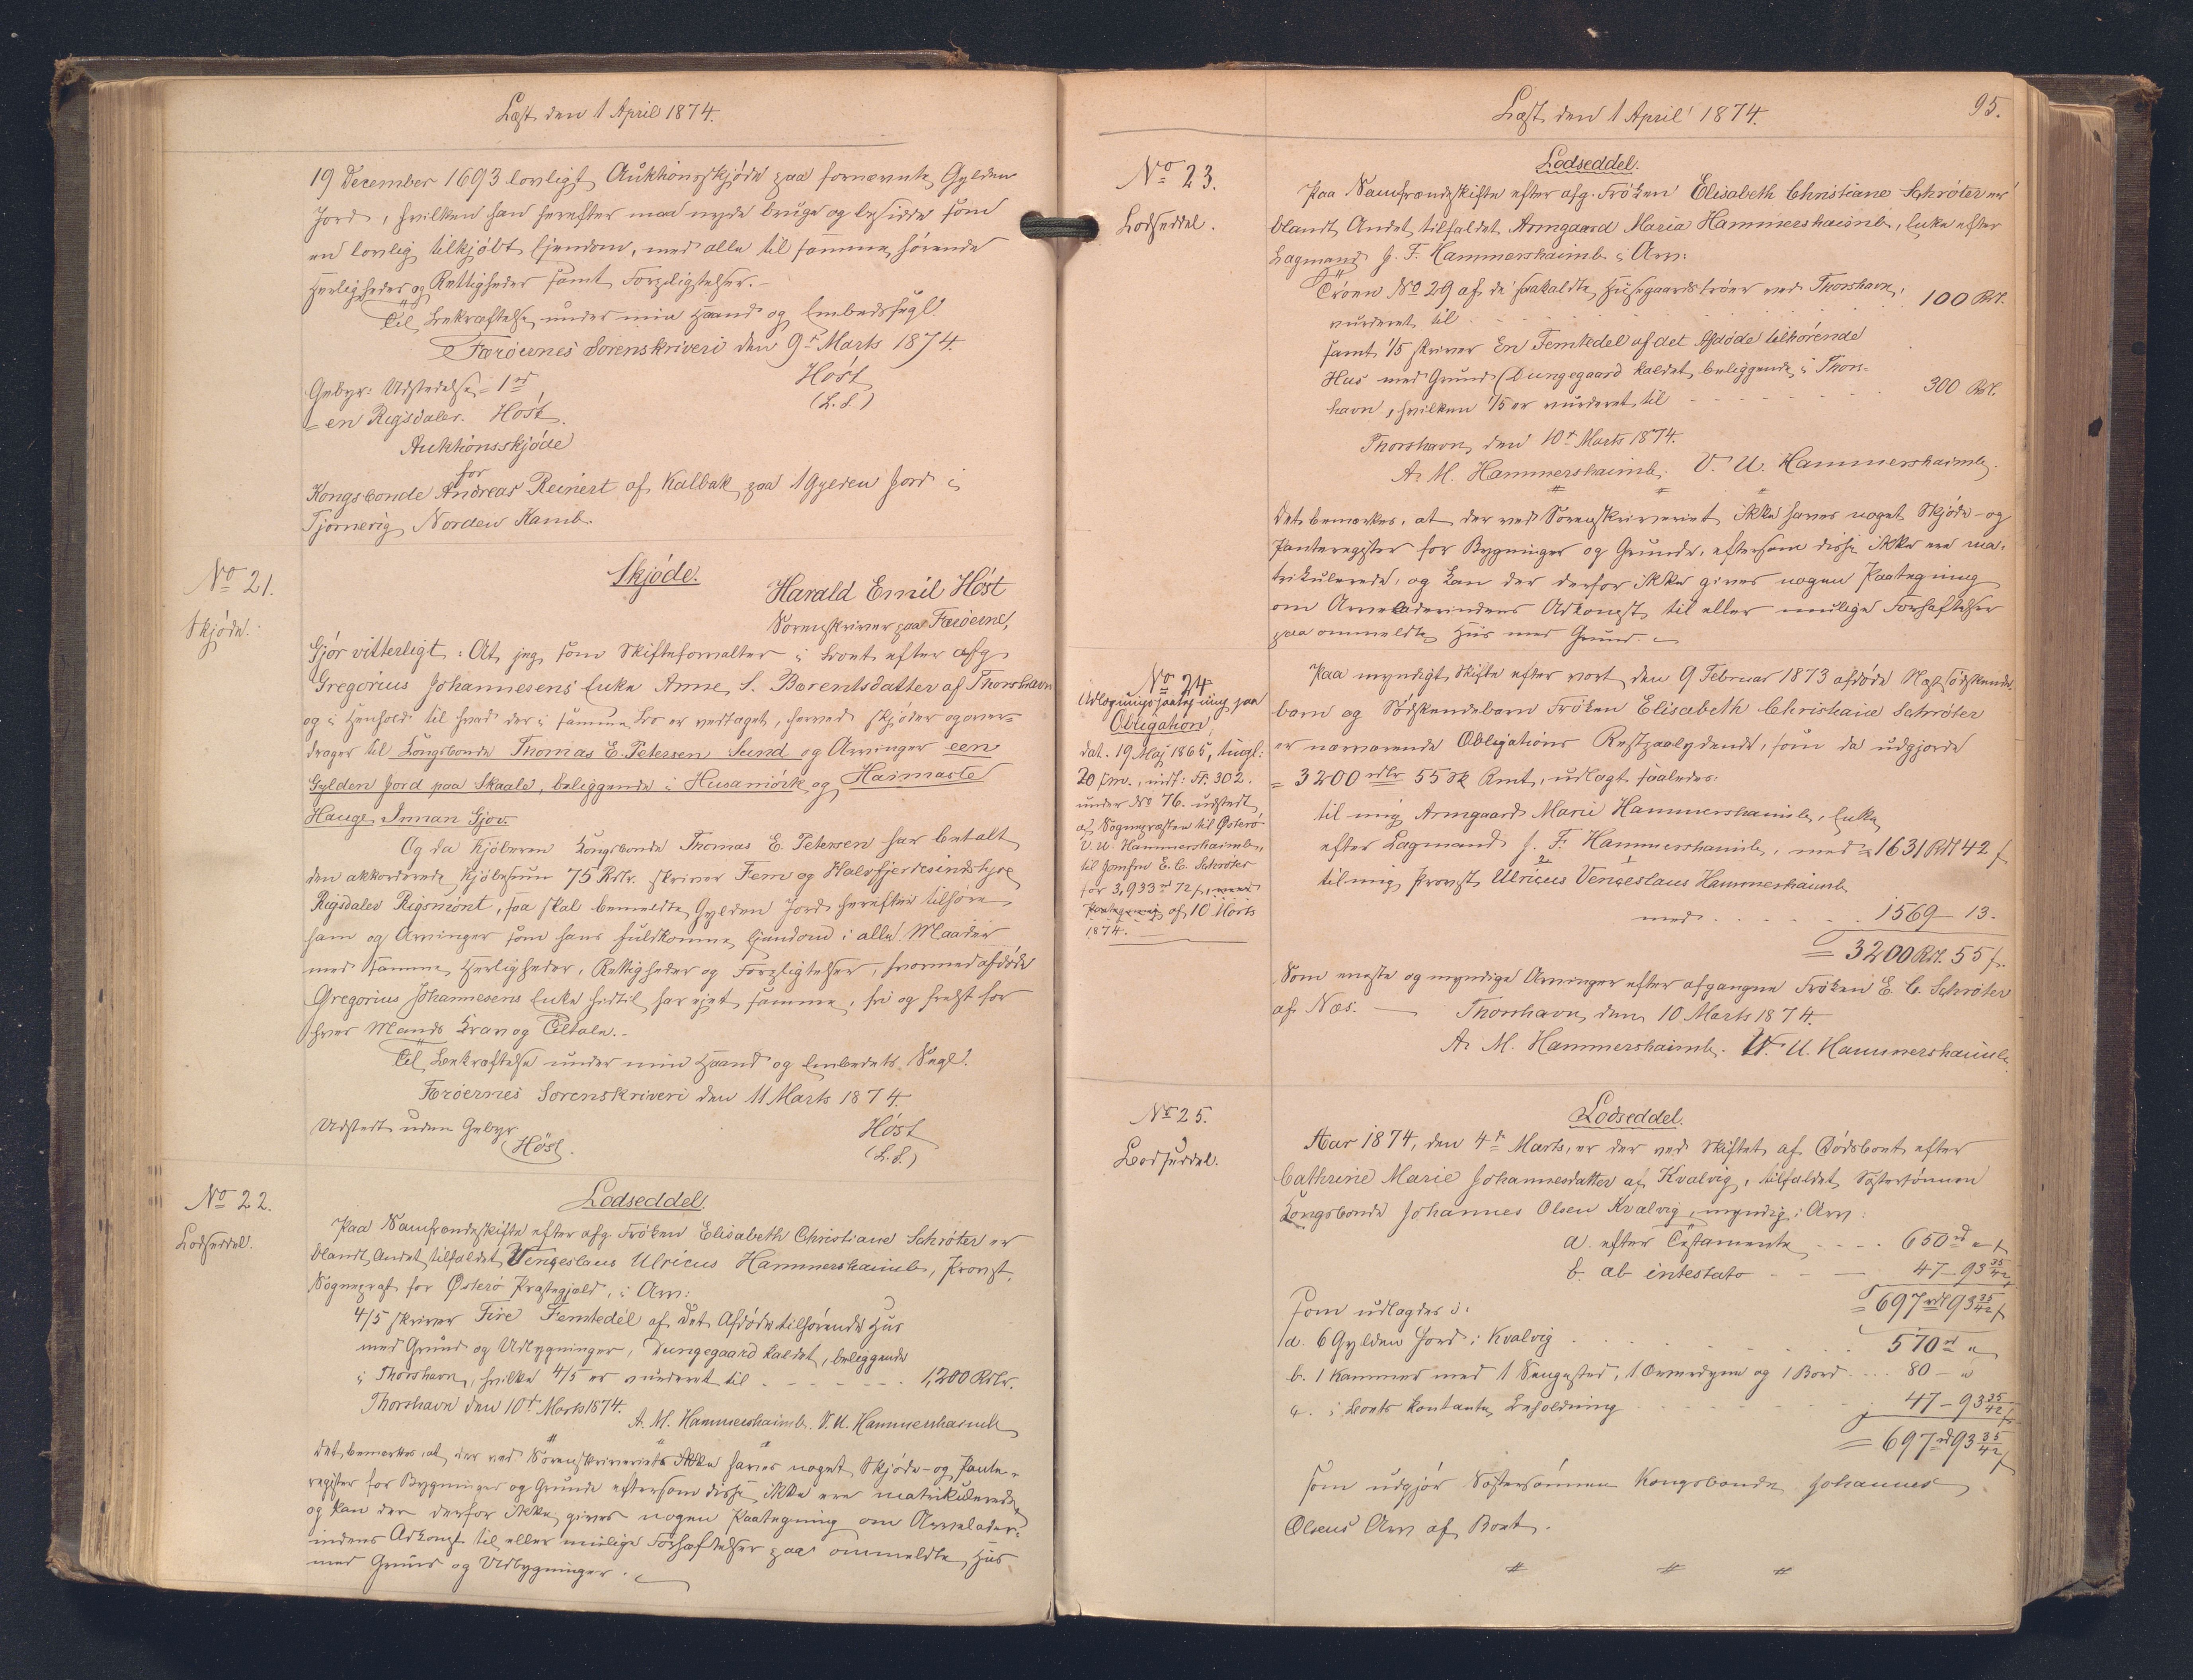 Læst den 1 April 1874.
19 December 1693 lovligt Auktionsskjøde paa fornævnte Gylden
Jord, hvilken han herefter maa nyde bruge og besidde som
en lovlig tilkjøbt Ejendom, med alle til samme hørende
Herligheder og Rettigheder samt Forpligtelser.
Til Bekræftelse under min Haand og Embedssegl.
Færøernes Sorenskriveri den 9t Marts 1874.
Høst
(L.S.)
Gebyr: Udstedelse = 1 rd
= en Rigsdaler. Høst.
Auktionsskjøde
for
Kongsbonde Andreas Reinert af Kalbak paa 1 Gylden Jord i
Tjørnevig Norden Kamb.
No 21.
Skjøde.
Skjøde.
Harald Emil Høst
Sorenskriver paa Færøerne,
Gjør vitterligt: At jeg som Skifteforvalter i Boet efter afg.
Gregorius Johannesens Enke Anne S. Barentsdatter af Thorshavn
og i Henhold til hvad der i samme Bo er vedtaget, herved skjøder og over-
drager til Kongsbonde Thomas E. Petersen Sund og Arvinger een
Gylden Jord paa Skaale, beliggende i Husamørk og Haimaste
Hauge Innan Gjov.
Og da Kjøberen Kongsbonde Thomas E. Petersen har betalt
den akkorderede Kjøbesum 75 Rdlr. skriver Fem og Halvfjerdesindstyve
Rigsdaler Rigsmønt, saa skal bemeldte Gylden Jord herefter tilhøre
ham og Arvinger som hans fuldkomne Ejendom i alle Maader
med samme Herligheder, Rettigheder og Forpligtelser, hvormed afdøde
Gregorius Johannesens Enke hidtil har ejet samme, fri og frelst for
hver Mands Krav og Tiltale.
Til Bekræftelse under min Haand og Embedets Segl.
Færøernes Sorenskriveri den 11 Marts 1874.
Udstedt uden Gebyr
Høst.
Høst
(L.S.)
No 22.
Lodseddel.
Lodseddel.
Paa Samfrændeskifte efter afg. Frøken Elisabeth Christiane Schrøter er
blandt Andet tilfaldet Vençeslaus Ulricus Hammershaimb, Provst,
Sognepræst for Østerø Præstegjæld, i Arv:
4/5 skriver Fire Femtedel af det Afdøde tilhørende Hus
med Grund og Udbygninger, Dungegaard kaldet, beliggende
i Thorshavn, hvilke 4/5 er vurderet til - - - - 1,200 Rdlr.
Thorshavn den 10t Marts 1874.
A. M. Hammershaimb. V. U. Hammershaimb
Det bemærkes, at der ved Sorenskriveriet ikke haves noget Skjøde- og Pante-
register for Bygninger og Grunde eftersom disse ikke ere matrikulerede
og kan der derfor ikke gives nogen Paategning om Arvelader-
indens Adkomst til eller mulige Forhæftelser paa ommeldte Hus
med Grund og Udbygninger.
Læst den 1 April 1874.
95.
No 23.
Lodseddel.
Lodseddel.
Paa Samfrændeskifte efter afg. Frøken Elisabeth Christiane Schrøter er
blandt Andet tilfaldet Armgaard Maria Hammershaimb, Enke efter
Lagmand J. F. Hammershaimb i Arv:
Trøen No 29 af de saakaldte Husegaardstrøer ved Thorshavn,
vurderet til . . . . 100 Rdl.
samt 1/5 skriver En Femtedel af det Afdøde tilhørende
Hus med Grund (Dungegaard kaldet, beliggende i Thors-
havn, hvilken 1/5 er vurderet til - - - - 300 Rdl.
Thorshavn den 10t Marts 1874.
A. M. Hammershaimb. V. U. Hammershaimb.
Det bemærkes, at der ved Sorenskriveriet ikke haves noget Skjøde- og
Panteregister for Bygninger og Grunde, eftersom disse ikke ere ma-
trikulerede, og kan der derfor ikke gives nogen Paategning
om Arveladerindens Adkomst til eller mulige Forhæftelser
paa ommeldte Hus med Grund.
No 24
Udlægningspaategning paa
Obligation,
dat. 19 Maj 1865, tingl.
20 s.m., indf: Fl. 302.
under No 76. udstedt
af Sognepræsten til Østerø
V. U. Hammershaimb,
til Jomfru E. C. Schrøter
for 3,933 rd 72 s, med
Paategning af 10 Marts
1874.
Paa myndigt Skifte efter vort, den 9 Februar 1873 afdøde Næstsødskende-
barn og Sødskendebarn Frøken Elisabeth Christiane Schrøter
er nærværende Obligations Restpaalydende, som da udgjorde
= 3200 rdlr 55 sk Rmt, udlagt saaledes:
til mig Armgaard Marie Hammershaimb, Enke
efter Lagmand J. F. Hammershaimb, med = 1631 Rdl 42 s
til mig Provst Ulricus Vençeslaus Hammershaimb
med . . . . . 1569 - 13.
= 3200 Rdl. 55 s.
Som eneste og myndige Arvinger efter afgangne Frøken E. C. Schrøter
af Næs. — Thorshavn den 10 Marts 1874.
A. M. Hammershaimb. V. U. Hammershaimb.
No 25.
Lodseddel.
Lodseddel.
Aar 1874, den 4de Marts, er der ved Skiftet af Dødsboet efter
Cathrine Marie Johannesdatter af Kvalvig, tilfaldet Søstersønnen
Kongsbonde Johannes Olsen Kvalvig, myndig, i Arv:
a. efter Testamente - - - - 650 rd „ s
b. ab intestato - - — 47 - 93 35/42
= 697 rdl 93 35/42 s
som udlagdes i:
a. 6 Gylden Jord i Kvalvig . . . . 570 rd „
b. 1 Kammer med 1 Sengested, 1 Overdyne og 1 Bord . . . . 80 - „
c. i Boets kontante Beholdning - - - - 47 - 93 35/42 s
= 697 rd 93 35/42 s
som udgjør Søstersønnen Kongsbonde Johannes
Olsens Arv af Boet.